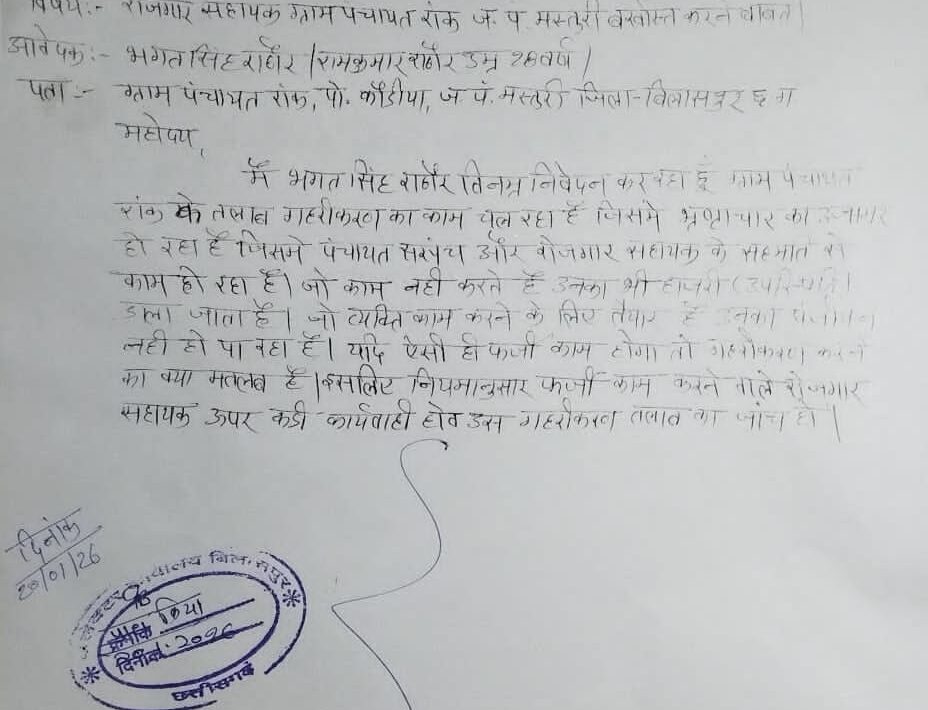 विषय:- रोजगार सहायक ग्राम पंचायत रांक ज. पं. मस्तुरी बरखास्त करने बाबत।
आवेदक:- भगत सिंह राठौर / रामकुमार राठौर उम्र 28 वर्ष /
पता:- ग्राम पंचायत रांक, पो. कौडीया, ज. पं. मस्तुरी जिला-बिलासपुर छ ग
महोदय,
मैं भगत सिंह राठौर विनम्र निवेदन कर रहा हूँ ग्राम पंचायत
रांक के तलाब गहरीकरण का काम चल रहा है जिसमे भ्रष्टाचार का उजागर
हो रहा है जिसमे पंचायत सरपंच और रोजगार सहायक के सहमति से
काम हो रहा है। जो काम नही करते है उनका भी हाजरी
डाला जाता है। जो व्यक्ति काम करने के लिए तैयार है उनका पंजीयन
नही हो पा रहा है। यदि ऐसी ही फर्जी काम होगा तो गहरीकरण करने
का क्या मतलब है। इसलिए नियमानुसार फर्जी काम करने वाले रोजगार
सहायक ऊपर कडी कार्यवाही होव उस गहरीकरण तलाब का जांच हो।
दिनांक
20/01/26
कलेक्टर कार्यालय बिलासपुर
क्रमांक
दिनांक: 2026
छत्तीसगढ़